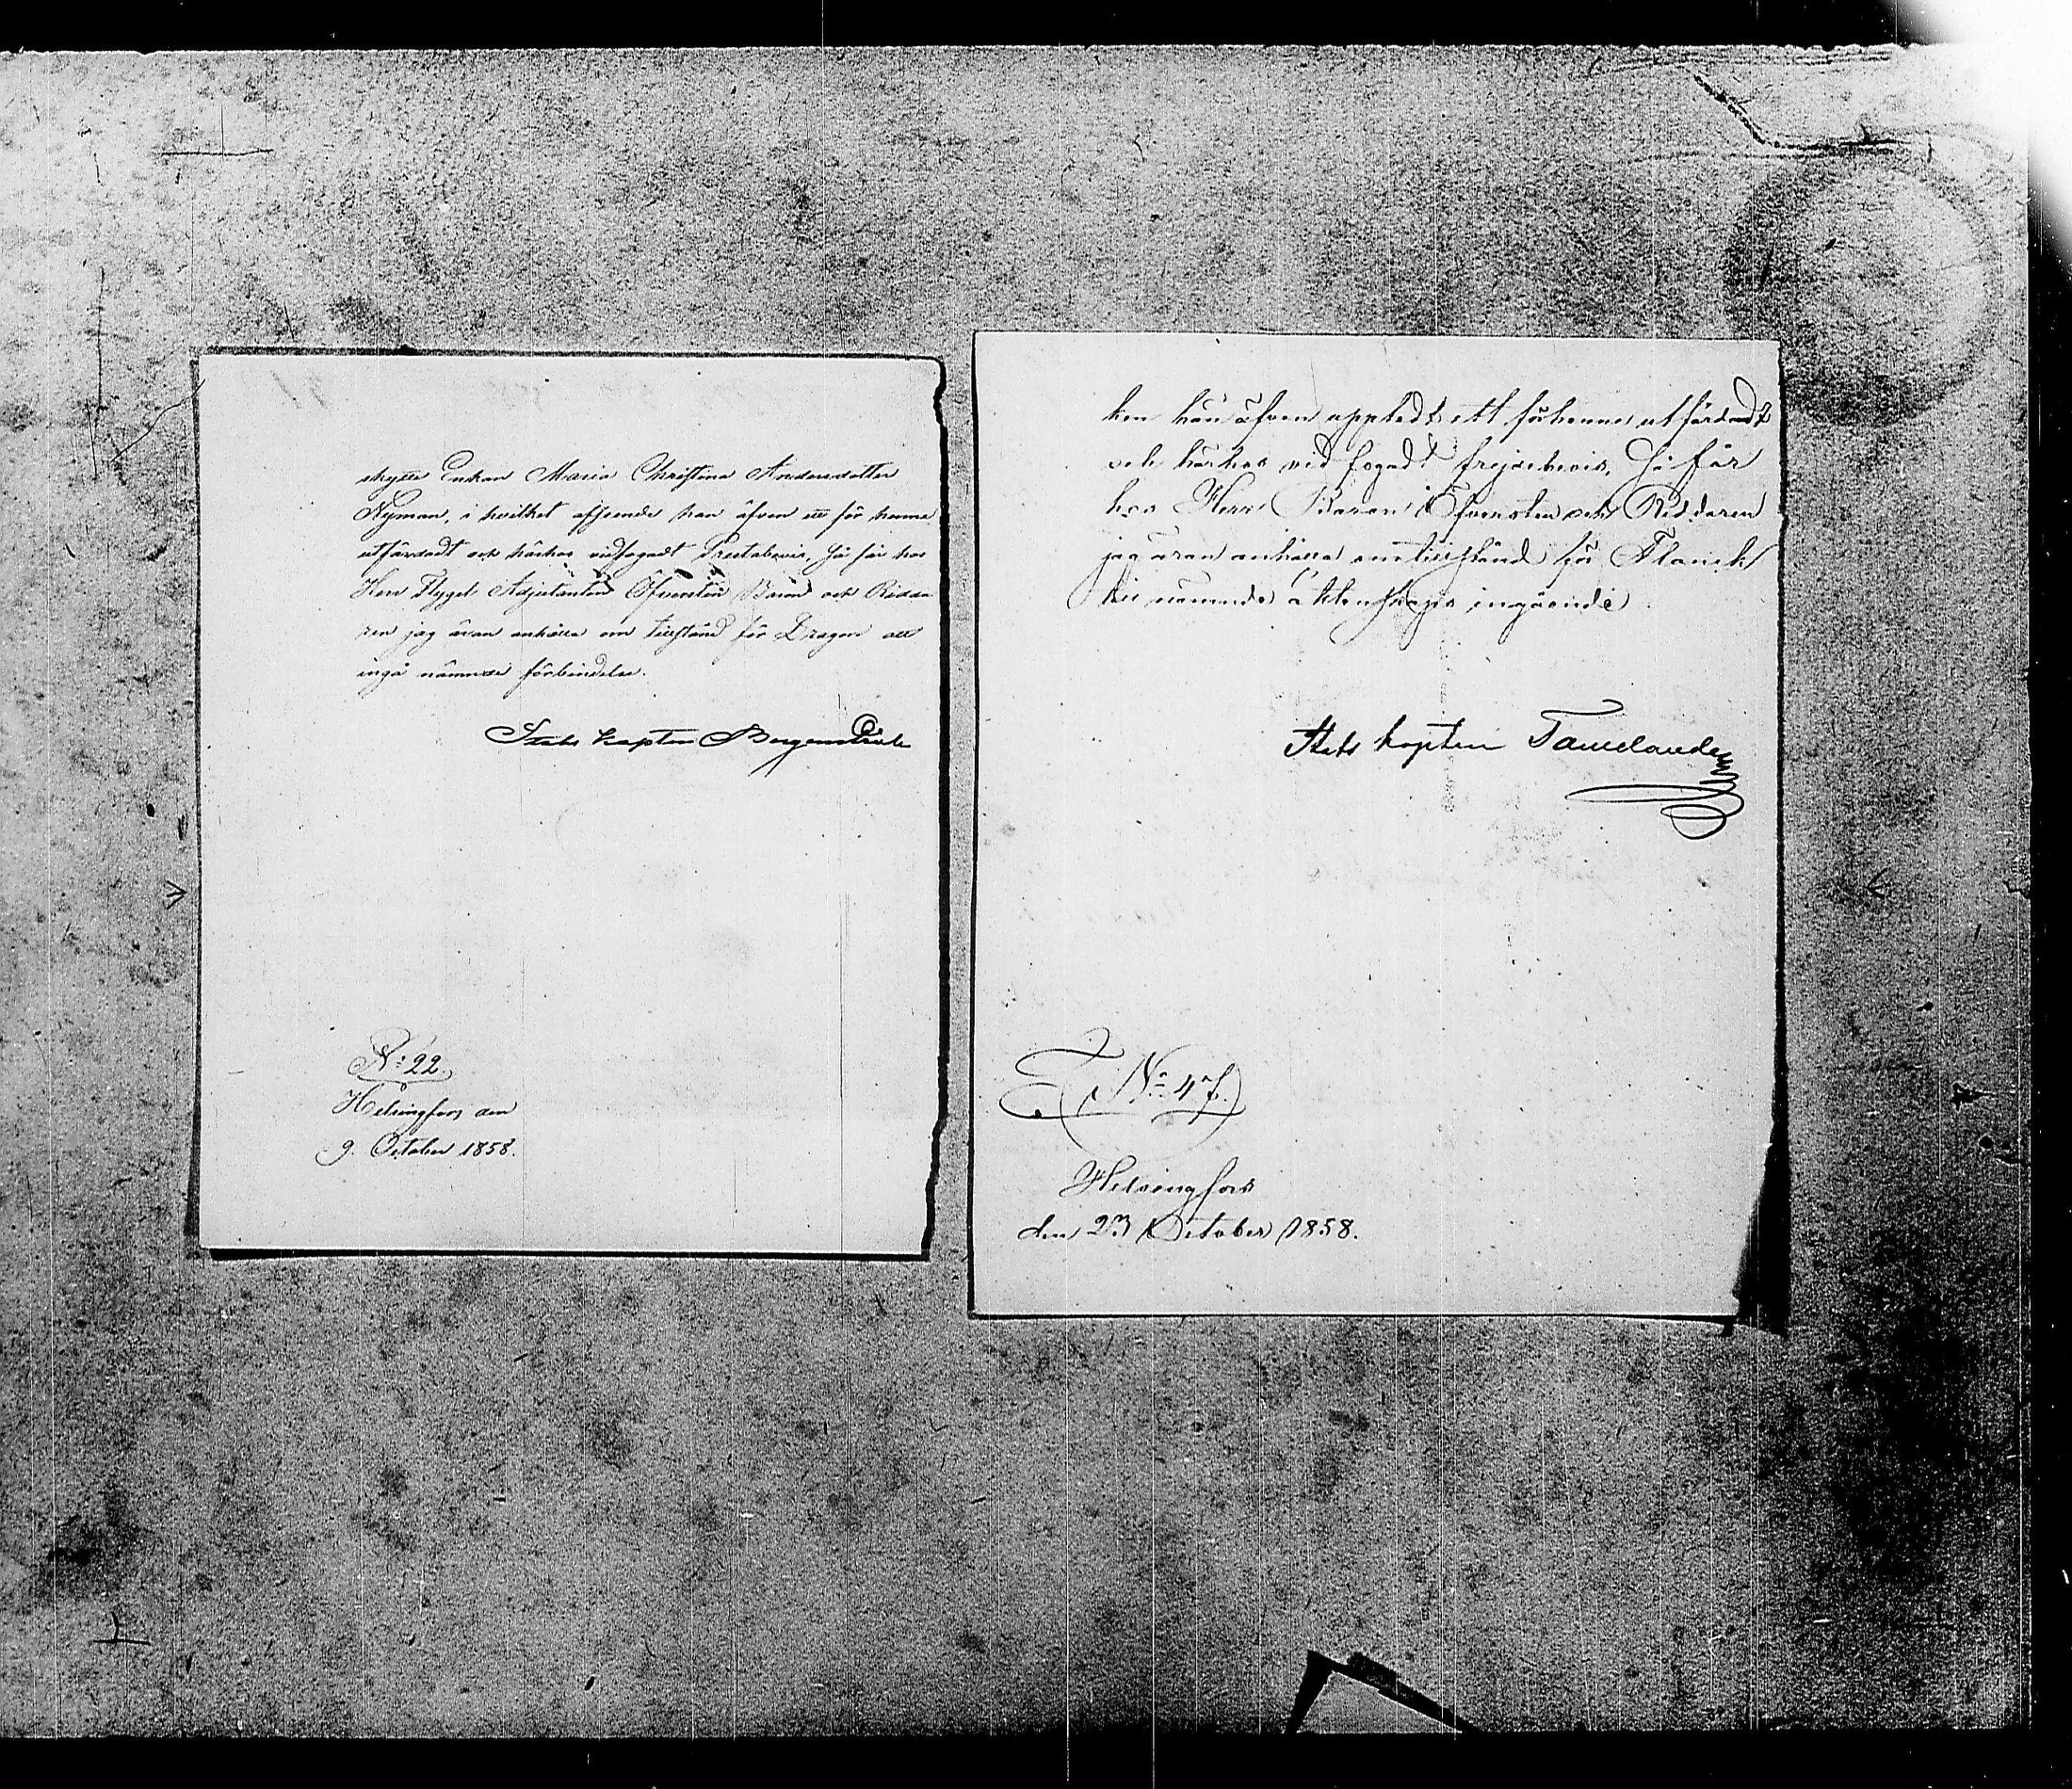 skytte Enkan Maria Christina Andersdotter
Nyman, i hvilket afseende han äfven ett för henne
utfärdadt och härhos vidfogadt Prestabevis, så får hos
Herr Flygel Adjutanten Öfversten Baron och Ridda
ren jag äran anhålla om tillstånd för Dragon att
ingå nämnde förbindelse.
Stabs kapten Bergenstråle
N: 22.
Helsingfors den
9. October 1858.
ken han äfven upptedt ett för henne utfärdadt
och härhos vid fogadt frejdebevis, Så får
hos Herr Baron Öfversten och Riddaren
jag äran anhålla om tillstånd för Flanck
till nämnde äktenskaps ingående
Stabs kapten Tawelander
N: 47.
Helsingfors
den 23 October 1858.